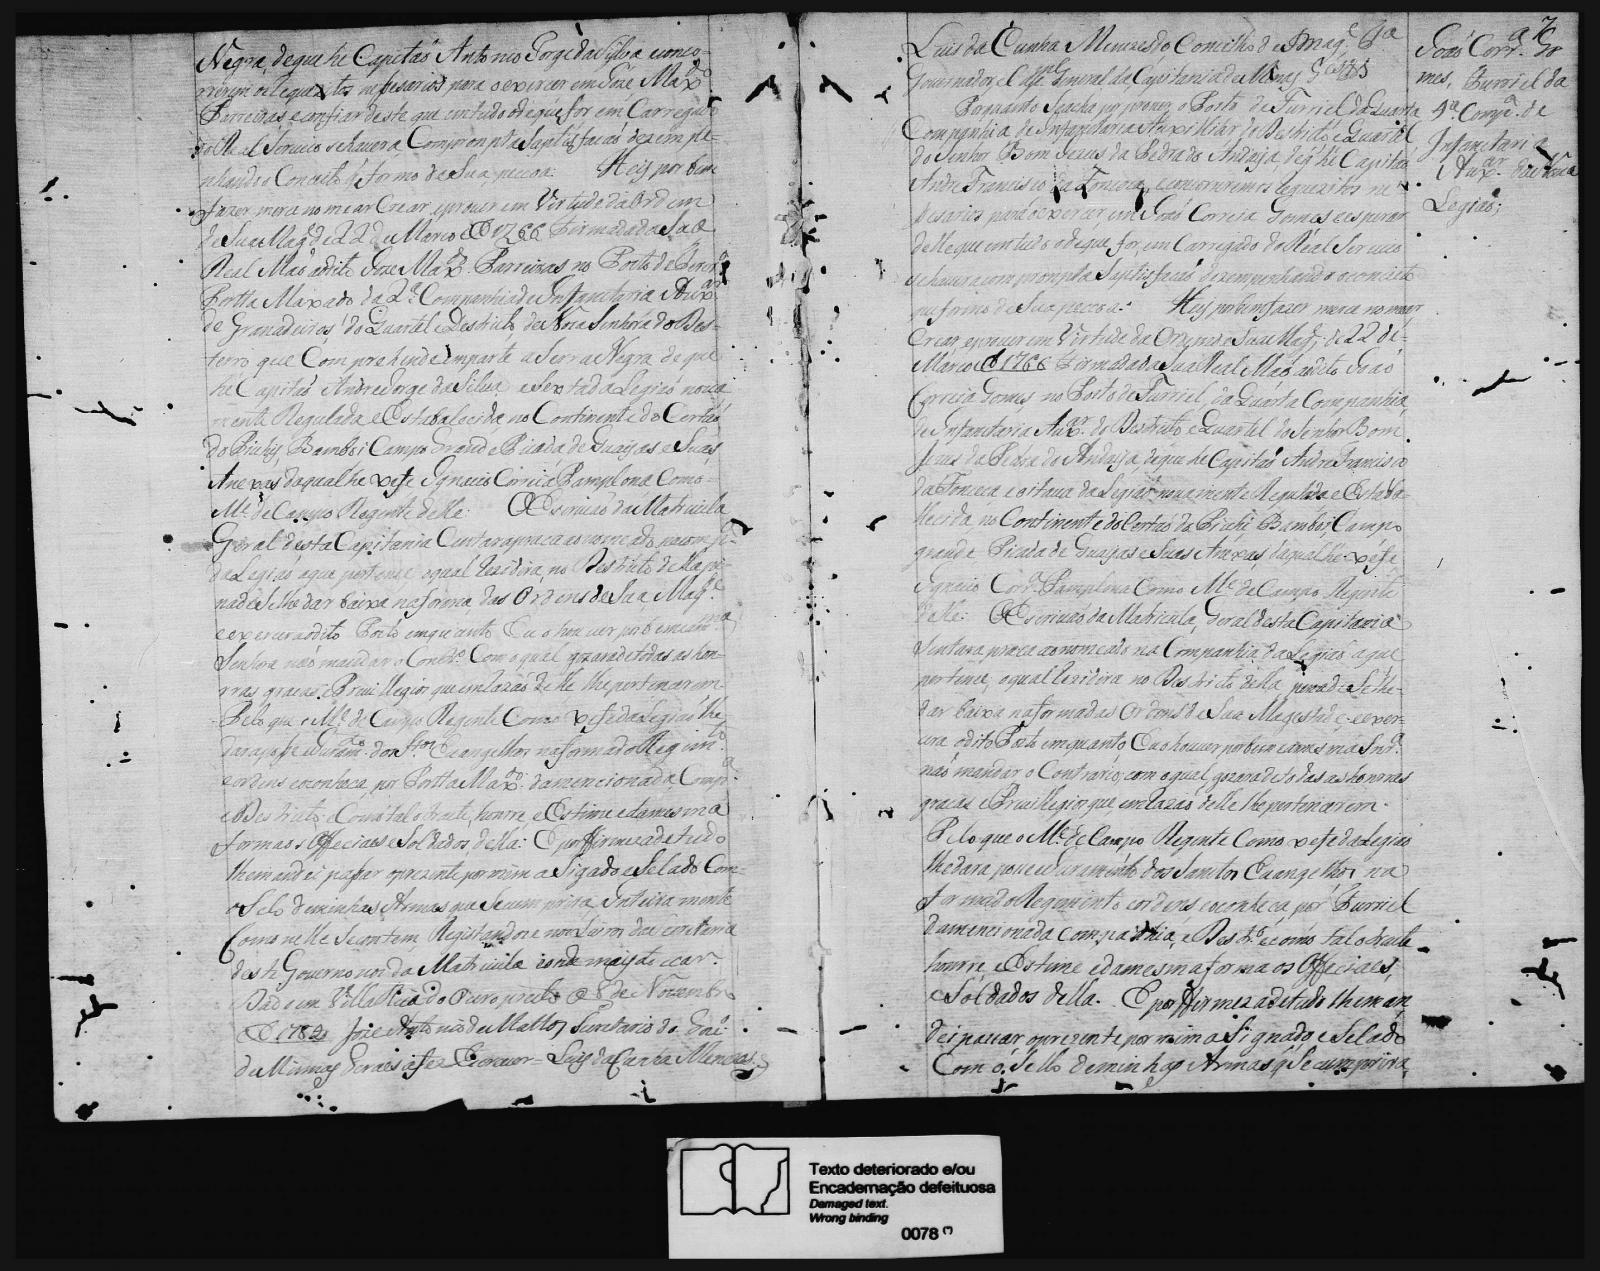 Negra, de que he Capitaõ Antonio Jorge da Silva e conco-
rrerem os requezitos nesesarios para o exercer em Joze Max.do
Parreiras, e confiar deste que em tudo o de que for em Carregado
do Real Servico se havera, Com prompta Saptisfacaõ dezempe-
nhando o Conceito q̃ formo de Sua pecoa: Hey por bem
fazer merce nomear Crear, e prover em Virtude da Ordem
de Sua Mag.de de 22 de Marco D 1766 Firmada da Sua
Real Maõ ao dito Joze Max.do Parreiras no Posto de
Portta Maxado da 2.ª Companhia de Infanctaria Aux.ar
de Granadeiros, do Quartel e Destricto de Nosa Senhora do Des-
terro que Comprehende emparte a Serra Negra de que
he Capitaõ Andre Jorge da Silva, e Sexta da Legiaõ nova
mente Regulada e Estabalecida no Continente do Certaõ
do Piuhy, Bamboi Campo Grande Picada de Guayas e Suas
Anexas da qual he xefe Ignacio Correia Pamplona Como
M.e de Campo Regente della: O Escrivaõ da Matricula
Geral desta Capitania lhe sentara praca ao nomeado, na comp.ª
da Legiaõ a que pertense o qual Rezidira, no Destricto della pe-
na de Se lhe dar baixa na forma das Ordens de Sua Mag.de
e exercera o dito Posto emquanto Eu o houver por bem e a m.ma
Senhora naõ mandar o Contr.o Com o qual gozara de todas as hon-
rras gracas e Privillegios que em Razaõ delle lhe pertencerem
Pelo que o M.e de Campo Regente Como xefe da Legiaõ lhe
dara posse e Juram.to dos S.tos Evangelhos na forma do Regim.to
e ordens e conheca por Portta Max.do da mencionada Comp.ª
e Destricto e Como tal o trate, honrre, e Estime e da mesma
forma os Officiaes e Soldados della: E por firmeza de tudo
lhe mandei pasar o prezente por mim a Signado e Selado Com
o Selo de minhas Armas que Se cumprira Inteira mente
Como nelle Se contem Registandose nos Livros da Secretaria
deste Governo nos da Matricula e onde mais to car.
Dado em Villa Rica do Ouro preto a 8 de Novembro
D 1782 Joze Antonio de Mattos Secretario do Gov.o
de Minnas Geraes a fez Escrever = Luis da Cunha Menezes
Luis da Cunha Menezes do Concelho de S. Mag.e F.ª
Governador e Cap.m General da Capitania de Minas G.es
Porquanto Se acha por prover o Posto de Furriel da Quarta
Companhia de Infanctaria Auxilliar do Destricto e Quartel
do Senhor Bom Jezus da Pedra do Andaja, de q̃ he Capitaõ
Andre Francisco da Fonceca, e concorrerem os requezitos ne
sesarios para o exercer em Joaõ Correia Gomes e esperar
delle que em tudo o de que for, em Carregado do Real Servico
se havera com prompta Saptisfacaõ dezempenhando o conceito
que formo de Sua pecoa: Hey por bem fazer merce nomear
Crear, e prover em Virtude da Ordem de Sua Mag.de de 22 de-
Marco D 1766 Firmada da Sua Real Maõ ao dito Joaõ
Correia Gomes no Posto de Furriel, da Quarta Companhia,
de Infanctaria Aux.ar do Destricto e Quartel do Senhor Bom
Jezus da Pedra do Andaja, de que he Capitaõ Andre Francisco
da Fonceca e oitava da Legiaõ novamente Regulada e Estaba
llecida, no Continente do Certaõ da Piuhy Bamboi, Campo
grande Picada de Guayas e Suas Anexas, da qual he xefe
Ignacio Corr.ª Pamplona Como M.e de Campo Regente
della: O Escrivaõ da Matricula, Geral desta Capitania
Sentara praca ao nomeado na Companhia da Legiaõ a que
pertence, o qual Rezidira no Destricto della, pena de Se lhe-
dar baixa na forma das Ordens de Sua Magestade, e exer-
cera o dito Posto emquanto Eu o houver por bem e a mesma Snr.ª
naõ mandar o Contrario, com o qual gozara de todas as honrras
gracas e Privillegios que em Razaõ delle lhe pertencerem.
Pelo que o M.e de Campo Regente Como xefe da Legiaõ
lhe dara posse e Juramento dos Santos Evangelhos na
forma do Regimento e ordens e conheca por Furriel
da mencionada Companhia, e Destr.o e como tal o trate
honrre, e Estime e da mesma forma os Officiaes,
e Soldados della. E por firmeza de tudo lhe man
dei pasar o prezente por mim a Signado e Selado
Com o Sello de minhas Armas q̃ Se cumprira,
Joaõ Corr.ª Go
mes, Furriel da
4.ª Comp.ª de
Infanctaria
Aux.ar da
Legiaõ;
Texto deteriorado e/ou
Encadernação defeituosa
Damaged text.
Wrong binding
0078 (*)